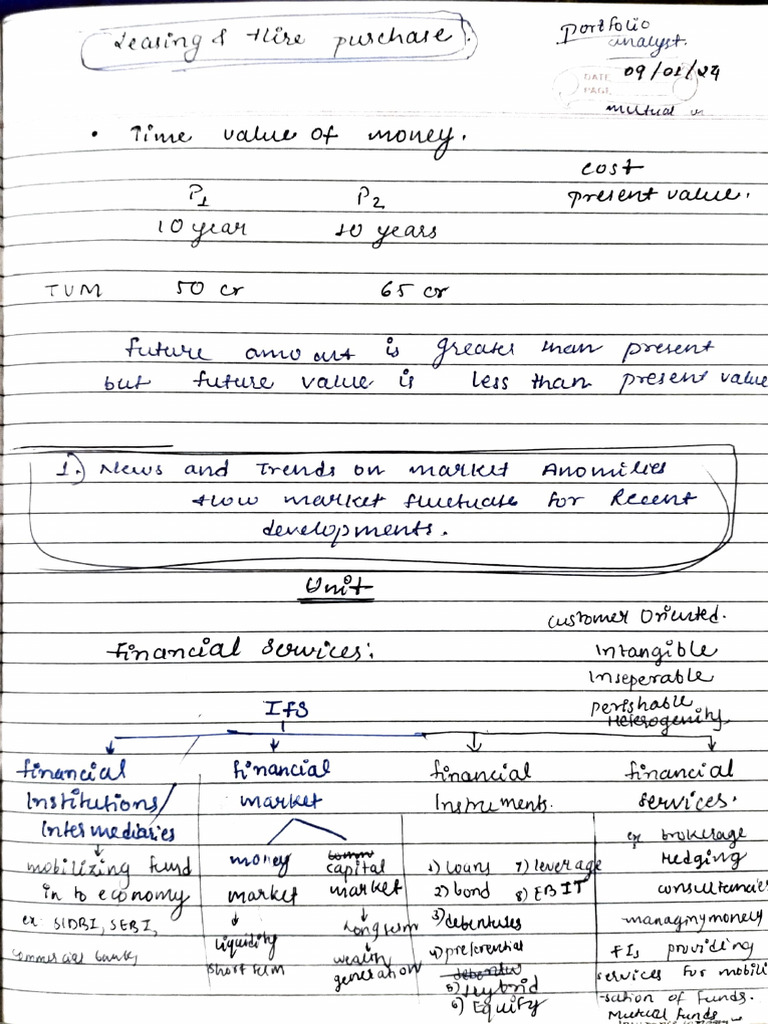 Leasing & Hire purchase.
Portfolio
analyst.
DATE 09/01/24
PAGE
mutual
• Time value of money.
cost
present value.
P1 P2
10 year 10 years
TVM 50 cr 65 cr
future amount is greater than present
but future value is less than present value
1.) News and Trends on market Anomilies
How market fluctuate for Recent
developments.
Unit
customer oriented.
Financial services:
Intangible
Inseperable
perishable
Heterogenity
IFS
financial
Institutions/
Intermediaries
mobilizing fund
in to economy
ex: SIDBI, SEBI,
commercial banks
financial
market
money
market
liquidity
short term
capital
market
long term
wealth
generation
financial
Instruments.
1) loans
2) bond
3) debentures
4) preferential
5) Hybrid
6) Equity
7) leverage
8) EBIT
financial
services.
ex brokerage
Hedging
consultancies
managing money
FIs providing
services for mobili
-sation of funds.
Mutual funds